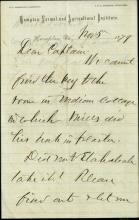 Hampton Normal and Agricultural Institute
Hampton, Va., Nov 5 1879
Dear Captain
We cannot
find the key to the
room in
in which Mills did
his bust in plaster.
Did not
take it? Please
find out & let me